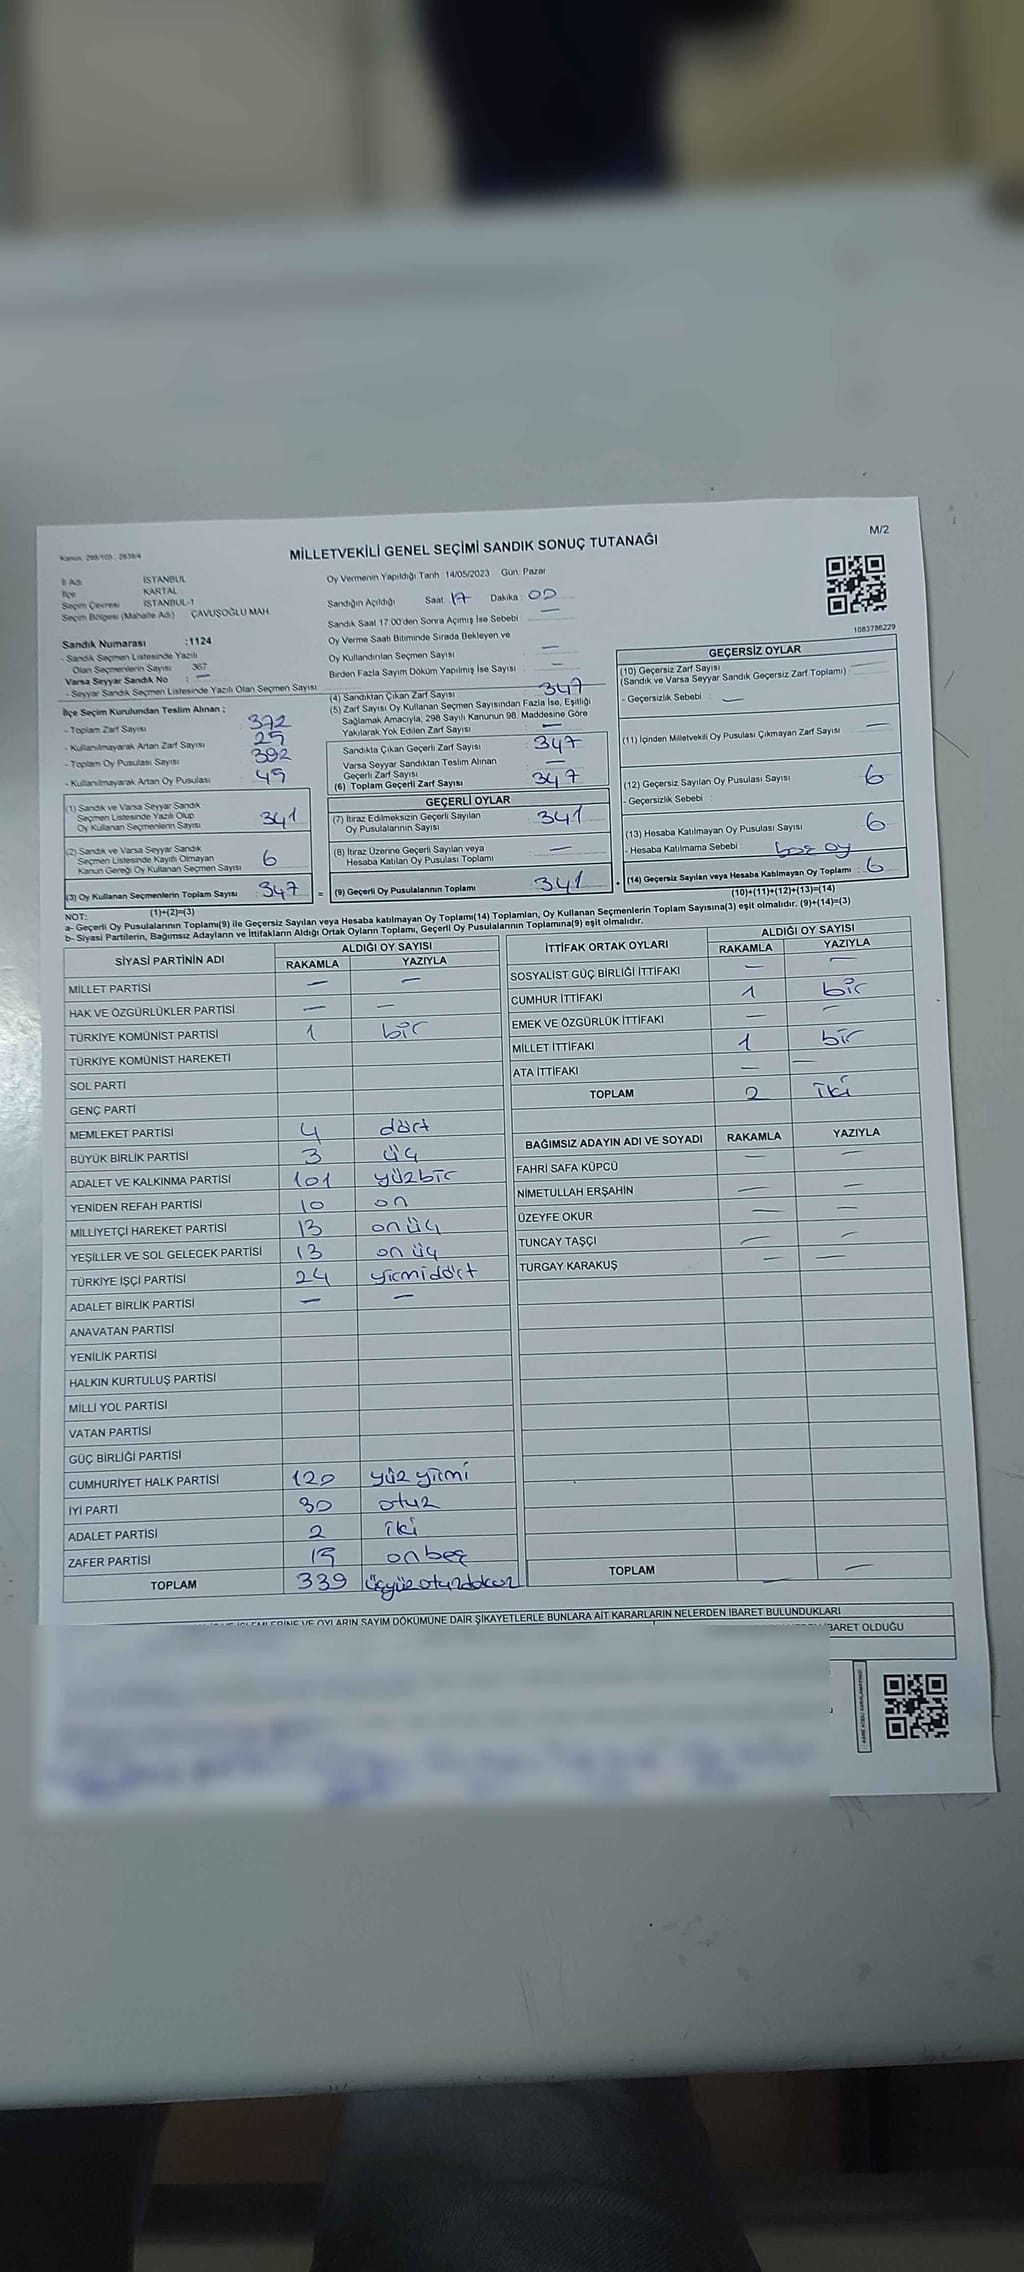 Kanun, 298/105 , 2839/4
MİLLETVEKİLİ GENEL SEÇİMİ SANDIK SONUÇ TUTANAĞI
M/2
İl Adı İSTANBUL
İlçe KARTAL
Seçim Çevresi İSTANBUL-1
Seçim Bölgesi (Mahalle Adı) ÇAVUŞOĞLU MAH
Oy Vermenin Yapıldığı Tarih 14/05/2023 Gün: Pazar
Sandığın Açıldığı Saat 17 Dakika 00
Sandık Saat 17:00'den Sonra Açımış İse Sebebi —
Oy Verme Saati Bitiminde Sırada Bekleyen ve
Oy Kullandırılan Seçmen Sayısı —
Birden Fazla Sayım Döküm Yapılmış İse Sayısı —
1083786229
Sandık Numarası :1124
- Sandık Seçmen Listesinde Yazılı
Olan Seçmenlerin Sayısı 367
Varsa Seyyar Sandık No : —
- Seyyar Sandık Seçmen Listesinde Yazılı Olan Seçmen Sayısı
İlçe Seçim Kurulundan Teslim Alınan ;
- Toplam Zarf Sayısı 372
- Kullanılmayarak Artan Zarf Sayısı 25
- Toplam Oy Pusulası Sayısı 392
- Kullanılmayarak Artan Oy Pusulası 45
(1) Sandık ve Varsa Seyyar Sandık
Seçmen Listesinde Yazılı Olup
Oy Kullanan Seçmenlerin Sayısı 341
(2) Sandık ve Varsa Seyyar Sandık
Seçmen Listesinde Kayıtlı Olmayan
Kanun Gereği Oy Kullanan Seçmen Sayısı 6
(3) Oy Kullanan Seçmenlerin Toplam Sayısı 347
(1)+(2)=(3)
(4) Sandıktan Çıkan Zarf Sayısı 347
(5) Zarf Sayısı Oy Kullanan Seçmen Sayısından Fazla İse, Eşitliği
Sağlamak Amacıyla, 298 Sayılı Kanunun 98. Maddesine Göre
Yakılarak Yok Edilen Zarf Sayısı —
Sandıkta Çıkan Geçerli Zarf Sayısı 347
Varsa Seyyar Sandıktan Teslim Alınan
Geçerli Zarf Sayısı —
(6) Toplam Geçerli Zarf Sayısı 347
GEÇERLİ OYLAR
(7) İtiraz Edilmeksizin Geçerli Sayılan
Oy Pusulalarının Sayısı 341
(8) İtiraz Üzerine Geçerli Sayılan veya
Hesaba Katılan Oy Pusulası Toplamı —
= (9) Geçerli Oy Pusulalarının Toplamı 341 +
GEÇERSİZ OYLAR
(10) Geçersiz Zarf Sayısı
(Sandık ve Varsa Seyyar Sandık Geçersiz Zarf Toplamı)
- Geçersizlik Sebebi : —
(11) İçinden Milletvekili Oy Pusulası Çıkmayan Zarf Sayısı —
(12) Geçersiz Sayılan Oy Pusulası Sayısı 6
- Geçersizlik Sebebi :
(13) Hesaba Katılmayan Oy Pusulası Sayısı 6
- Hesaba Katılmama Sebebi : boş oy
(14) Geçersiz Sayılan veya Hesaba Katılmayan Oy Toplamı : 6
(10)+(11)+(12)+(13)=(14)
NOT:
a- Geçerli Oy Pusulalarının Toplamı(9) ile Geçersiz Sayılan veya Hesaba katılmayan Oy Toplamı(14) Toplamları, Oy Kullanan Seçmenlerin Toplam Sayısına(3) eşit olmalıdır. (9)+(14)=(3)
b- Siyasi Partilerin, Bağımsız Adayların ve İttifakların Aldığı Ortak Oyların Toplamı, Geçerli Oy Pusulalarının Toplamına(9) eşit olmalıdır.
SİYASİ PARTİNİN ADI ALDIĞI OY SAYISI
RAKAMLA YAZIYLA
MİLLET PARTİSİ — —
HAK VE ÖZGÜRLÜKLER PARTİSİ — —
TÜRKİYE KOMÜNİST PARTİSİ 1 bir
TÜRKİYE KOMÜNİST HAREKETİ
SOL PARTİ
GENÇ PARTİ
MEMLEKET PARTİSİ 4 dört
BÜYÜK BİRLİK PARTİSİ 3 üç
ADALET VE KALKINMA PARTİSİ 101 yüzbir
YENİDEN REFAH PARTİSİ 10 on
MİLLİYETÇİ HAREKET PARTİSİ 13 on üç
YEŞİLLER VE SOL GELECEK PARTİSİ 13 on üç
TÜRKİYE İŞÇİ PARTİSİ 24 yirmidört
ADALET BİRLİK PARTİSİ — —
ANAVATAN PARTİSİ
YENİLİK PARTİSİ
HALKIN KURTULUŞ PARTİSİ
MİLLİ YOL PARTİSİ
VATAN PARTİSİ
GÜÇ BİRLİĞİ PARTİSİ
CUMHURİYET HALK PARTİSİ 120 yüz yirmi
İYİ PARTİ 30 otuz
ADALET PARTİSİ 2 iki
ZAFER PARTİSİ 15 onbeş
TOPLAM 339 üçyüz otuzdokuz
İTTİFAK ORTAK OYLARI ALDIĞI OY SAYISI
RAKAMLA YAZIYLA
SOSYALİST GÜÇ BİRLİĞİ İTTİFAKI — —
CUMHUR İTTİFAKI 1 bir
EMEK VE ÖZGÜRLÜK İTTİFAKI — —
MİLLET İTTİFAKI 1 bir
ATA İTTİFAKI — —
TOPLAM 2 iki
BAĞIMSIZ ADAYIN ADI VE SOYADI RAKAMLA YAZIYLA
FAHRİ SAFA KÜPCÜ — —
NİMETULLAH ERŞAHİN — —
ÜZEYFE OKUR — —
TUNCAY TAŞÇI — —
TURGAY KARAKUŞ — —
TOPLAM — —
OYLARIN SAYIM DÖKÜMÜNE DAİR ŞİKAYETLERLE BUNLARA AİT KARARLARIN NELERDEN İBARET BULUNDUKLARI
İBARET OLDUĞU